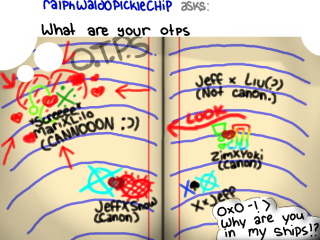 ralphWaldoPickleChip asks:
What are your otps
O.T.P.S
*Screeps*
MarixLilo
(CANNOOON :))
JeffXSnow
(Canon)
Jeff x Liu(?)
(Not canon.)
LOOK
ZimXYoki
(Canon)
XxJeff
OxO -! >
Why are you
in my ships!?